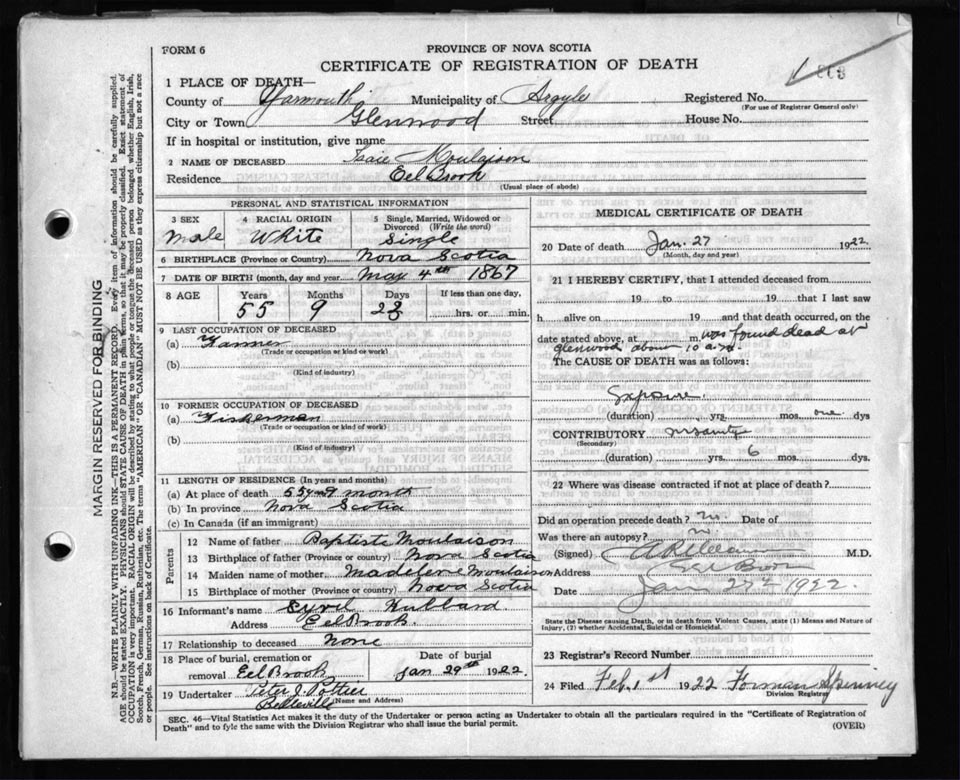 FORM 6
PROVINCE OF NOVA SCOTIA
CERTIFICATE OF REGISTRATION OF DEATH
1 PLACE OF DEATH—
County of Yarmouth Municipality of Argyle Registered No.
(For use of Registrar General only)
City or Town Glenwood Street House No.
If in hospital or institution, give name
2 NAME OF DECEASED Isaie Moulaison
Residence Eel Brook
(Usual place of abode)
PERSONAL AND STATISTICAL INFORMATION
3 SEX 4 RACIAL ORIGIN 5 Single, Married, Widowed or Divorced (Write the word)
Male White Single
6 BIRTHPLACE (Province or Country) Nova Scotia
7 DATE OF BIRTH (month, day and year) May 4th 1867
8 AGE Years Months Days If less than one day,
55 9 23 hrs. or min.
9 LAST OCCUPATION OF DECEASED
(a) Farmer
(Trade or occupation or kind or work)
(b)
(Kind of industry)
10 FORMER OCCUPATION OF DECEASED
(a) Fisherman
(Trade or occupation or kind of work)
(b)
(Kind of industry)
11 LENGTH OF RESIDENCE (In years and months)
(a) At place of death 55 yrs 9 month
(b) In province Nova Scotia
(c) In Canada (if an immigrant)
Parents
12 Name of father Baptiste Moulaison
13 Birthplace of father (Province or country) Nova Scotia
14 Maiden name of mother Madelene Moulaison
15 Birthplace of mother (Province or country) Nova Scotia
16 Informant's name Cyril Hubbard
Address Eel Brook
17 Relationship to deceased None
18 Place of burial, cremation or Date of burial
removal Eel Brook Jan 29th 1922
19 Undertaker Peter J. Pottier
Belleville (Name and Address)
MEDICAL CERTIFICATE OF DEATH
20 Date of death Jan. 27 1922
(Month, day and year)
21 I HEREBY CERTIFY, that I attended deceased from
19 to 19 that I last saw
h alive on 19 and that death occurred, on the
date stated above, at m. was found dead at
glenwood about 10 a.m.
The CAUSE OF DEATH was as follows:
Exposure
(duration) yrs. mos. one dys
CONTRIBUTORY Insanity
(Secondary)
(duration) yrs. 6 mos. dys.
22 Where was disease contracted if not at place of death?
Did an operation precede death? no Date of
Was there an autopsy? no
(Signed) M.D.
Address Eel Brook
Date Jan 27th 1922
State the Disease causing Death, or in death from Violent Causes, state (1) Means and Nature of
Injury, (2) whether Accidental, Suicidal or Homicidal.
23 Registrar's Record Number
24 Filed Feb. 1st 1922 Forman Spinney
Division Registrar
SEC. 46—Vital Statistics Act makes it the duty of the Undertaker or person acting as Undertaker to obtain all the particulars required in the "Certificate of Registration of
Death" and to fyle the same with the Division Registrar who shall issue the burial permit.
(OVER)
MARGIN RESERVED FOR BINDING
N.B.—WRITE PLAINLY WITH UNFADING INK—THIS IS A PERMANENT RECORD. Every item of information should be carefully supplied.
AGE should be stated EXACTLY. PHYSICIANS should STATE CAUSE OF DEATH in plain terms, so that it may be properly classified. Exact statement of
OCCUPATION is very important. RACIAL ORIGIN will be described by stating to what people or tongue the deceased person belonged whether English, Irish,
Scotch, French, German, Russian, Ruthenian, etc. The terms "AMERICAN" OR "CANADIAN" MUST NOT BE USED as they express citizenship but not a race
or people. See instructions on back of Certificate.